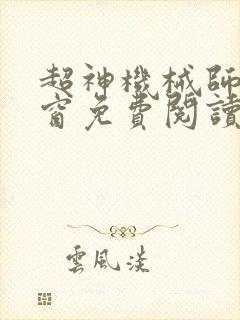 超神機械師
窗免費閱讀
雲風淡